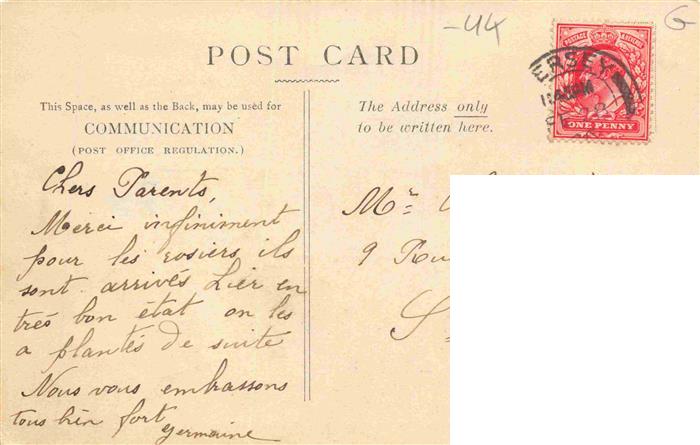 -44
G
POST CARD
POSTAGE & REVENUE
ONE PENNY
ERSEY
This Space, as well as the Back, may be used for
COMMUNICATION
(POST OFFICE REGULATION.)
The Address only
to be written here.
Chers Parents,
Merci infiniment
pour les rosiers ils
sont arrivés hier en
très bon état on les
a plantés de suite
Nous vous embrassons
tous bien fort
Germaine
Mr
9 Ru
S